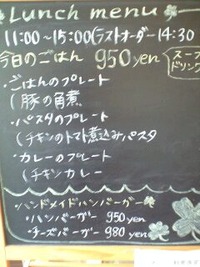 Lunch menu
11:00~15:00(ラストオーダー14:30
今日のごはん 950yen (スープ
ドリンク
・ごはんのプレート
(豚の角煮
・パスタのプレート
(チキンのトマト煮込みパスタ
・カレーのプレート
(チキンカレー
・ハンドメイドハンバーガー
・ハンバーガー 950yen
・チーズバーガー 980yen